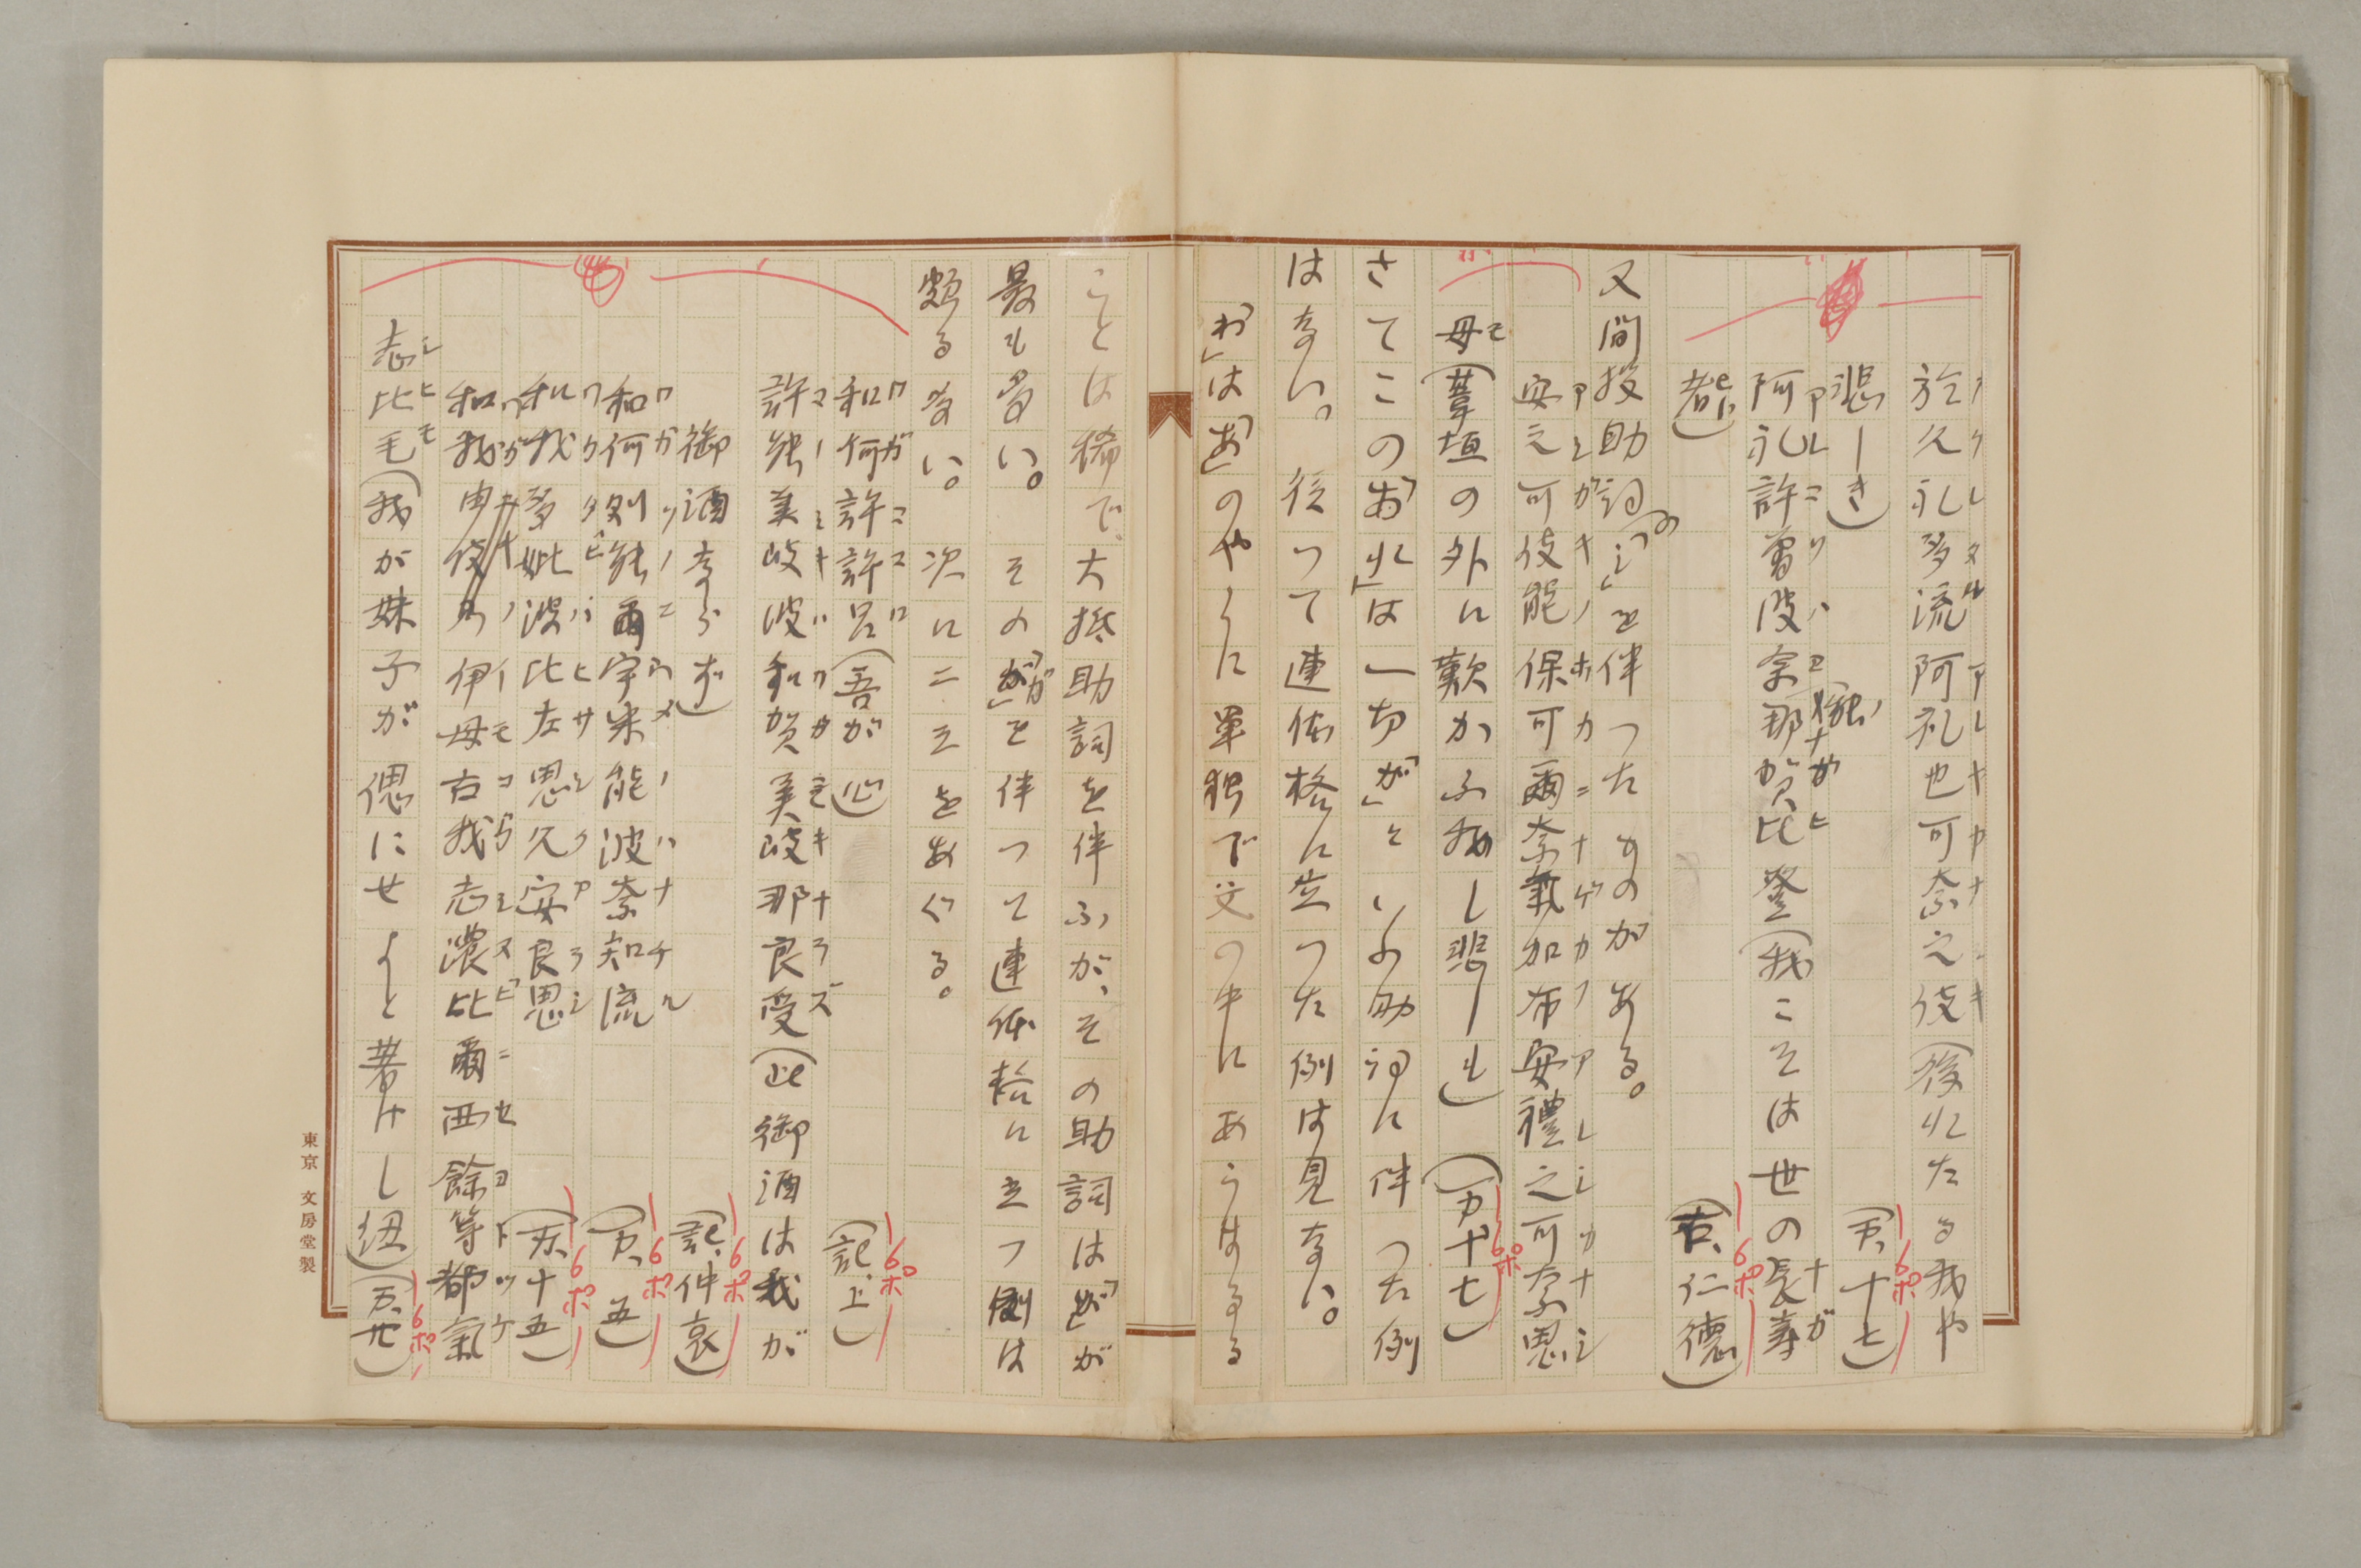 於久礼多流阿礼也可奈之伎(後れたる我や
悲しき)(万、十七)
阿礼許曽波余能那賀比登(我こそは世の長寿
者)(古、仁徳)
又間投助詞の「し」を伴つたものがある。
安之可伎能保可爾奈氣加布安禮之可奈思
母(葦垣の外に歎かふ我し悲しも)(万十七)
さてこの「お」「れ」は一切「が」といふ助詞に伴つた例
はない。従つて連体格に立つた例は見ない。
「わ」は「あ」のやうに単独で文の中にあらはるる
ことは稀で大抵助詞を伴ふが、その助詞は「が」が
最も多い。その「が」を伴つて連体格に立つ例は
頗る多い。次に二三をあぐる。
和何許許呂(吾が心)(記、上)
許能美岐波和賀美岐那良受(此御酒は我が
御酒ならず)(記、仲哀)
和何則能爾宇米能波奈知流(万、五)
和我多妣波比左思久安良思(万、十五)
和我由伎乃伊母古我志濃比爾西餘等都氣
志比毛(我が妹子が偲にせよと著けし紐)(万、廿)
6ポ
6ポ
6ポ
6ポ
6ポ
6ポ
6ポ
6ポ
東京 文房堂製